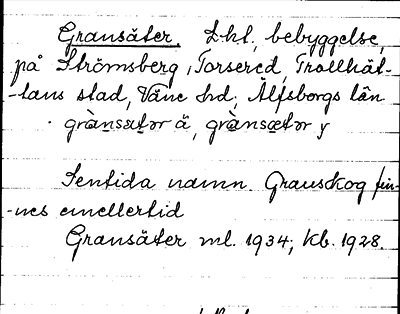 Gransäter. Lht, bebyggelse,
på Strömsberg, Torsered, Trollhät-
-tans stad, Väne hd, Älfsborgs län
grànsætər ä, grànsætər y
Sentida namn. Granskog fin-
-nes emellertid
Gransäter ml. 1934; Kb. 1928.